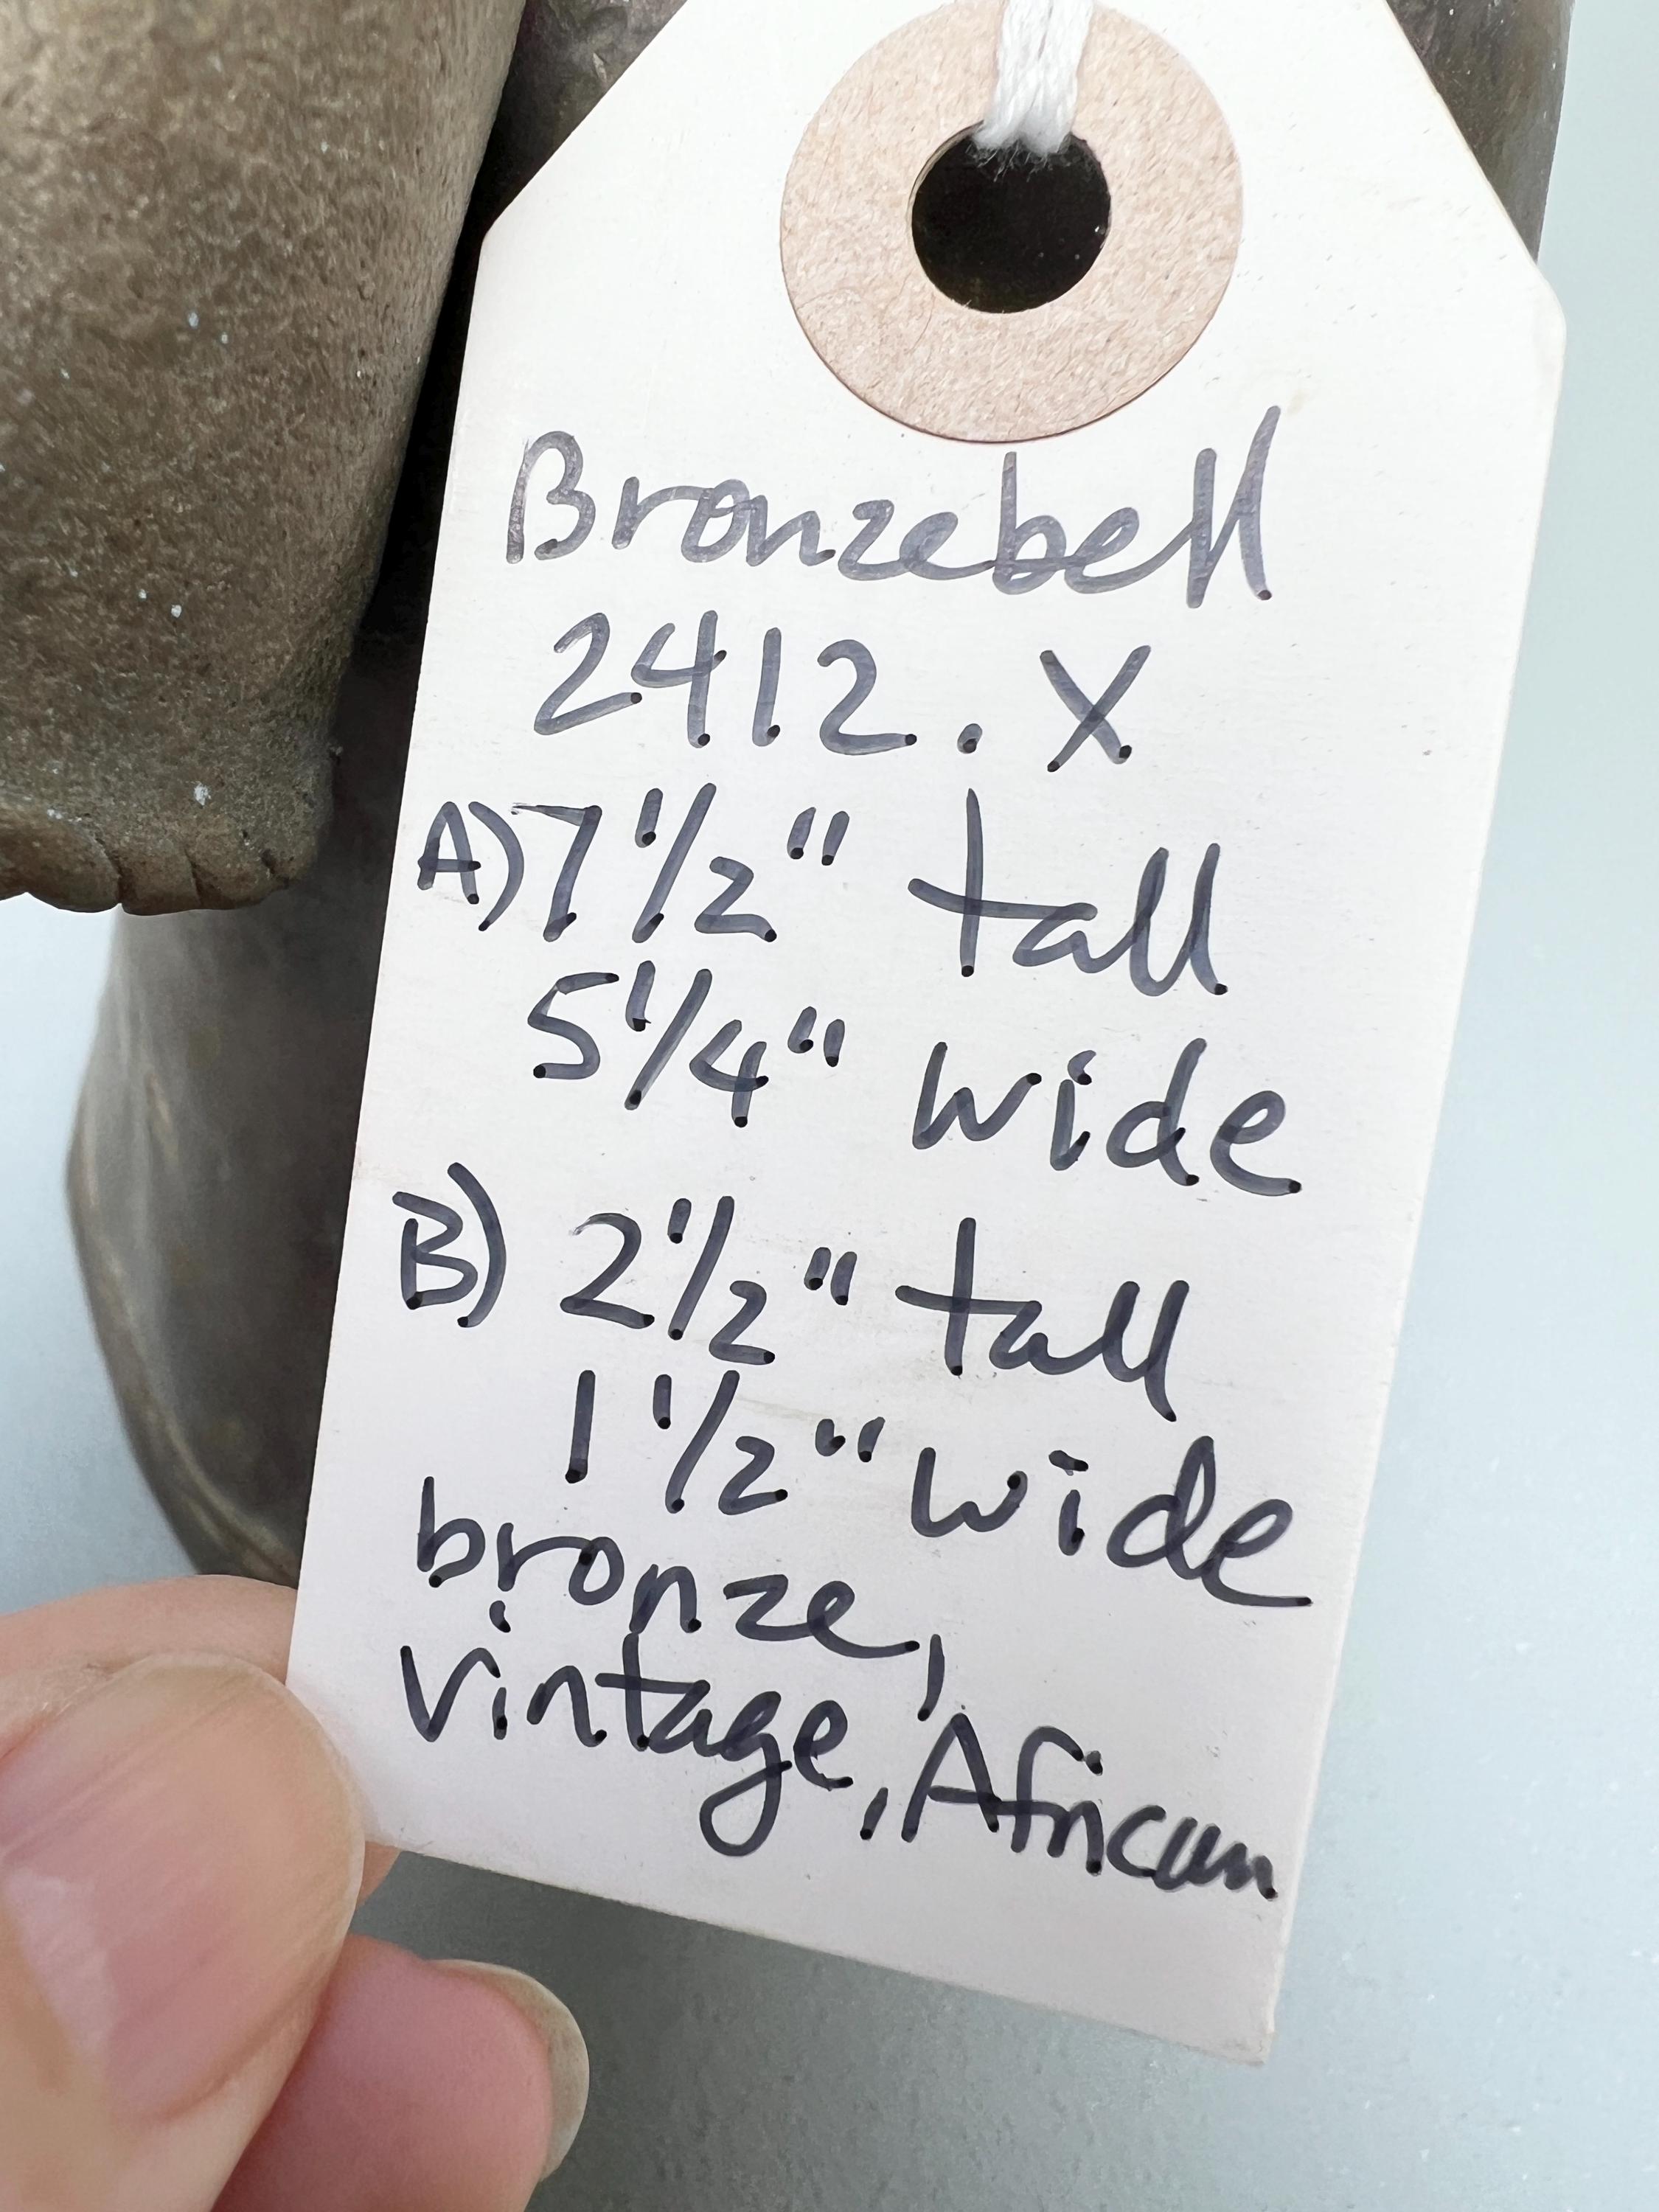 Bronzebell
2412.X
A) 7 1/2" tall
5 1/4" wide
B) 2 1/2" tall
1 1/2" wide
bronze,
vintage, African